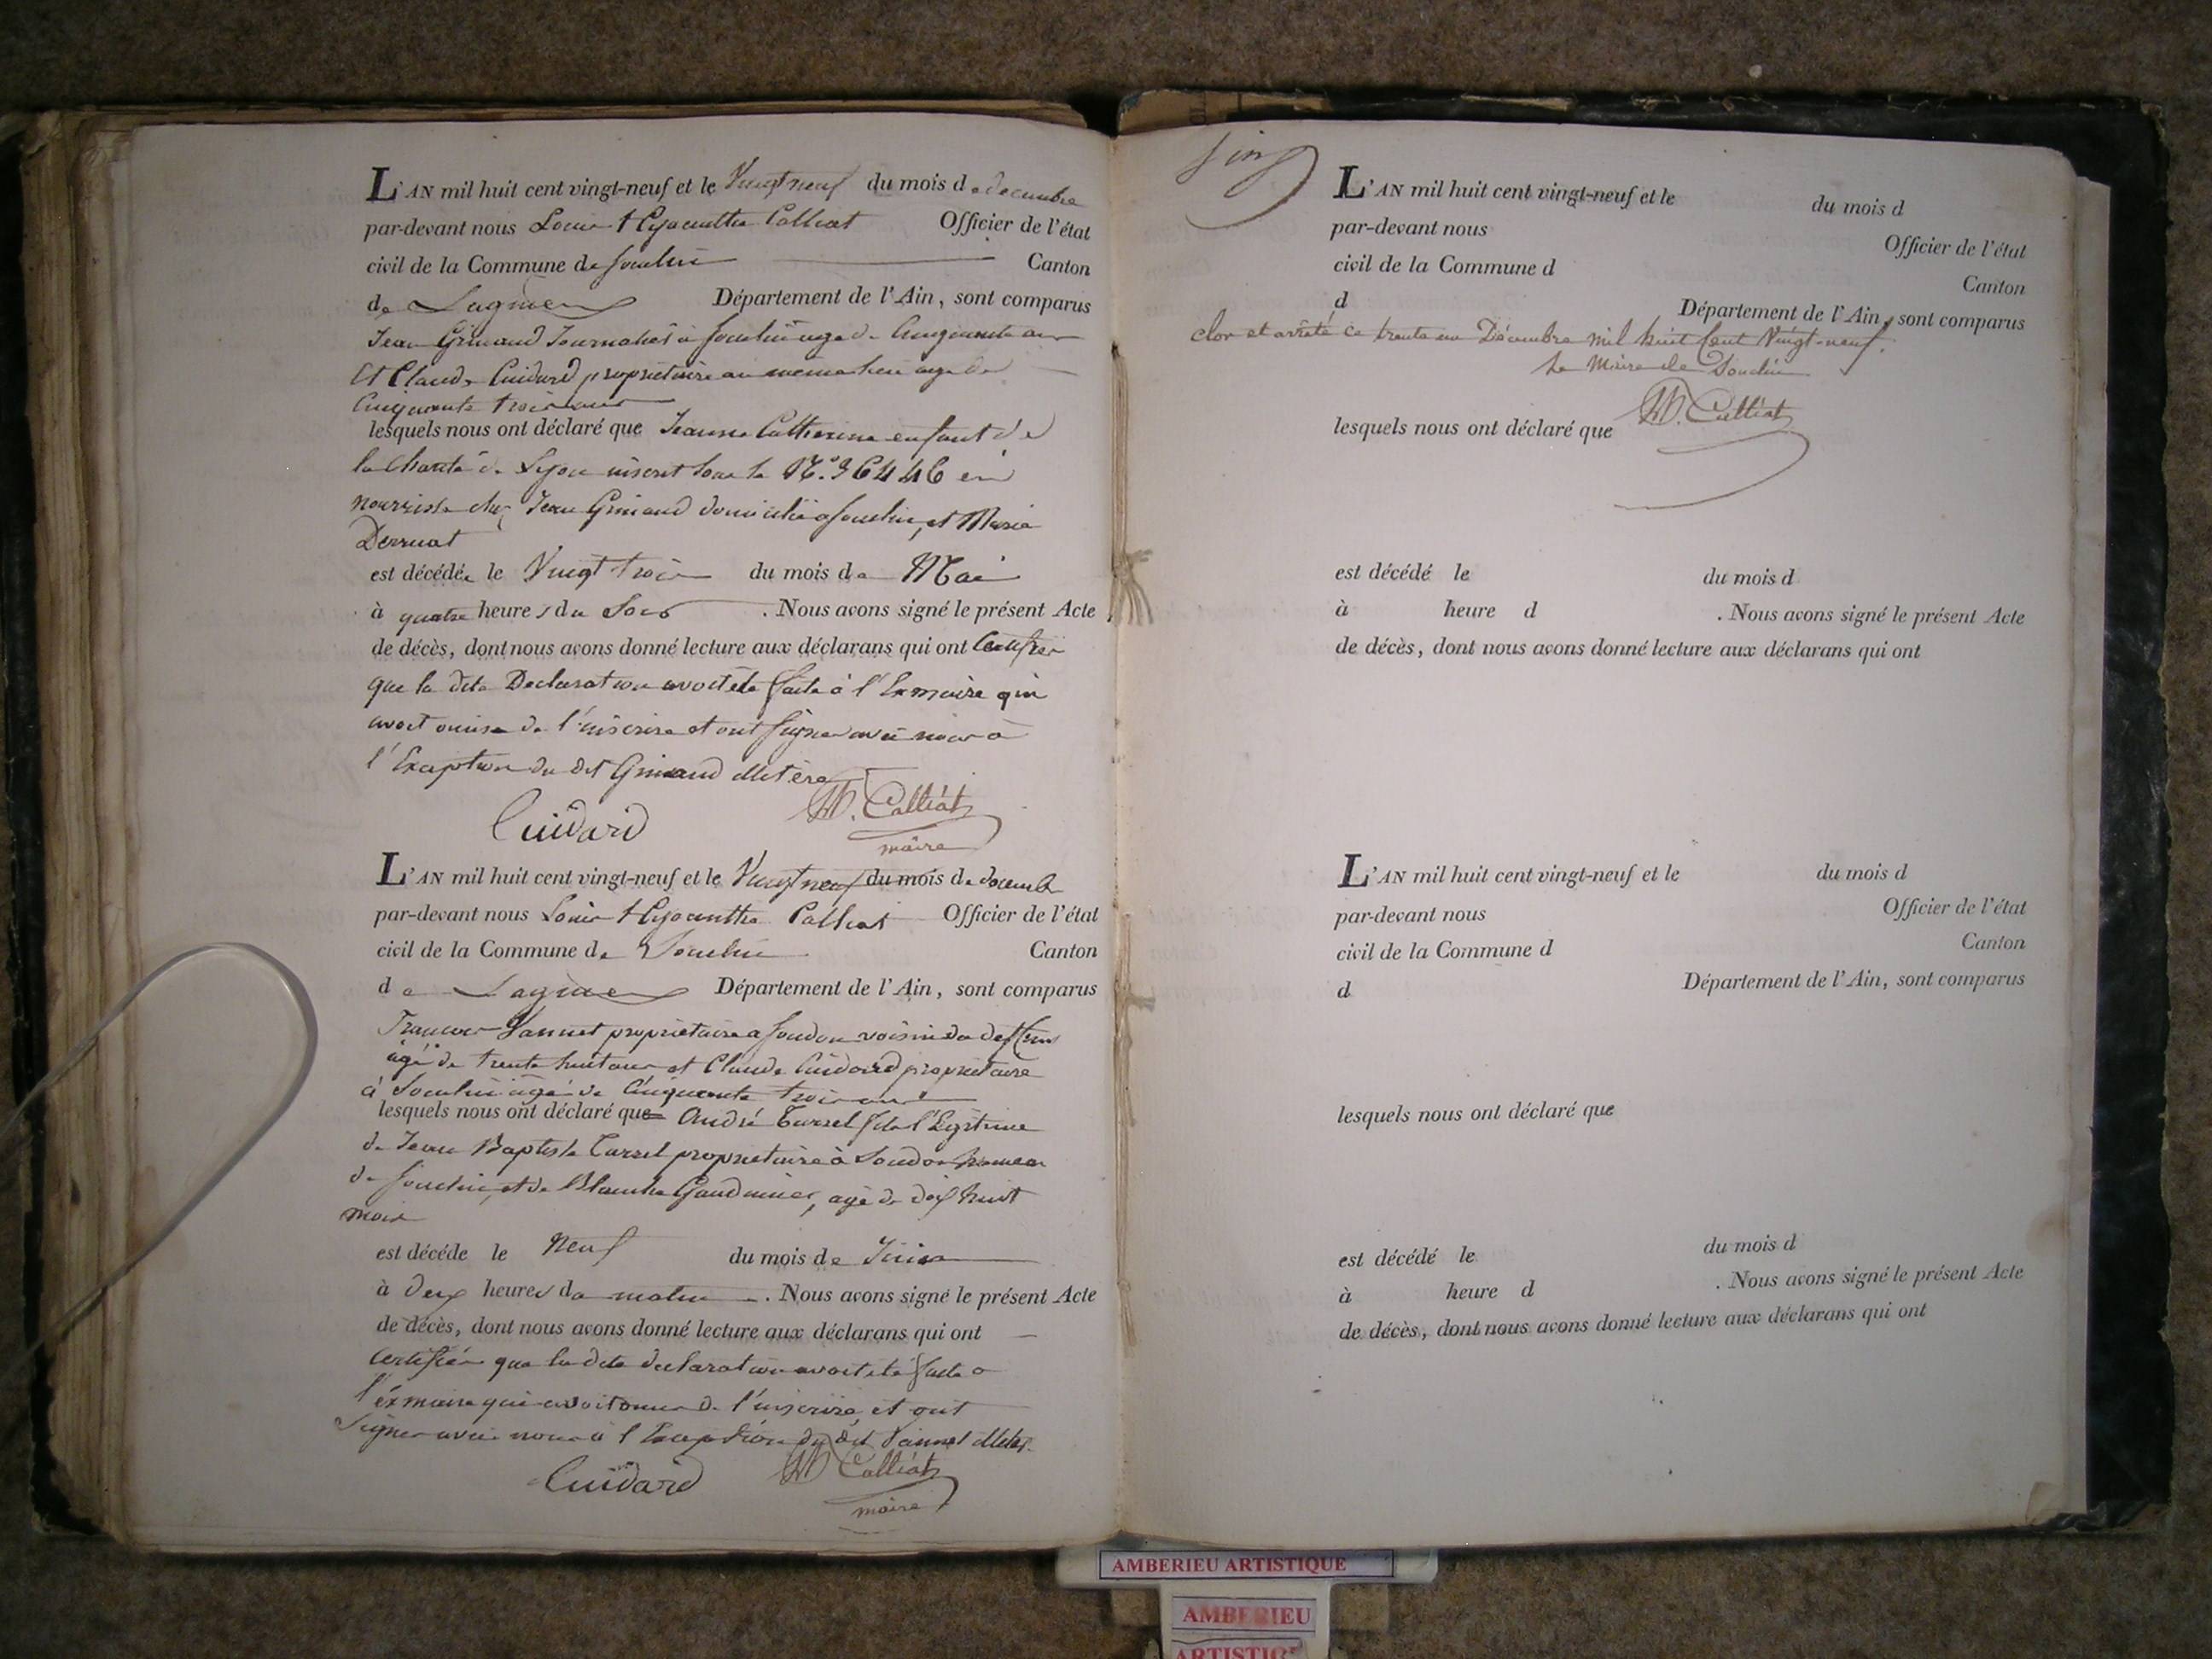 L'AN mil huit cent vingt-neuf et le Vingt neuf du mois de decembre
par-devant nous Louis Hyacinthe Calliat Officier de l'état
civil de la Commune de Souclin Canton
de Lagnieu Département de l'Ain, sont comparus
Jean Grinand Journalier à Souclin age de Cinquante ans
Et Claude Cuidard propriétaire au meme lieu age de
Cinquante trois ans
lesquels nous ont déclaré que Jeanne Catherine enfant de
la Charité de Lyon inscrit sous le N.º 36446 en
nourrisse chez Jean Grinand domicilié a Souclin, et Marie
Derruat
est décédée le Vingt trois du mois de Mai
à quatre heures du Soir . Nous avons signé le présent Acte
de décès, dont nous avons donné lecture aux déclarans qui ont Certifier
que la dite Declaration avoit été faite à l'Exmaire qui
avoit omise de l'inscrire et ont signer avec nous à
l'Exception du dit Grinand illetéré
Cuidard H. Calliat
maire
L'AN mil huit cent vingt-neuf et le Vingt neuf du mois de decembre
par-devant nous Louis Hyacinthe Calliat Officier de l'état
civil de la Commune de Souclin Canton
de Lagnieu Département de l'Ain, sont comparus
Francois Vannet propriétaire a Soudon voisin du deffunt
âgé de trente huit ans et Claude Cuidard propriétaire
à Souclin âgé de Cinquante trois ans
lesquels nous ont déclaré que André Curzel fils l'Egitime
de Jean Baptiste Curzel propriétaire à Soudon hameau
de Souclin, et de Blanche Gaudmier, agé de dix huit
mois
est décédé le Neuf du mois de Juin
à deux heures du matin . Nous avons signé le présent Acte
de décès, dont nous avons donné lecture aux déclarans qui ont
Certifier que la dite declaration avoit été faite a
l'éxmaire qui avoit omis de l'inscrire, et ont
signer avec nous à l'Exception du dit Vannet illeté.
Cuidard H. Calliat
maire
L'AN mil huit cent vingt-neuf et le du mois d
par-devant nous Officier de l'état
civil de la Commune d Canton
d Département de l'Ain, sont comparus
clos et arrêté ce trente un Décembre mil huit Cent Vingt-neuf.
Le Maire de Souclin
H. Calliat
lesquels nous ont déclaré que
est décédé le du mois d
à heure d . Nous avons signé le présent Acte
de décès, dont nous avons donné lecture aux déclarans qui ont
L'AN mil huit cent vingt-neuf et le du mois d
par-devant nous Officier de l'état
civil de la Commune d Canton
d Département de l'Ain, sont comparus
lesquels nous ont déclaré que
est décédé le du mois d
à heure d . Nous avons signé le présent Acte
de décès, dont nous avons donné lecture aux déclarans qui ont
AMBERIEU ARTISTIQUE
AMBERIEU